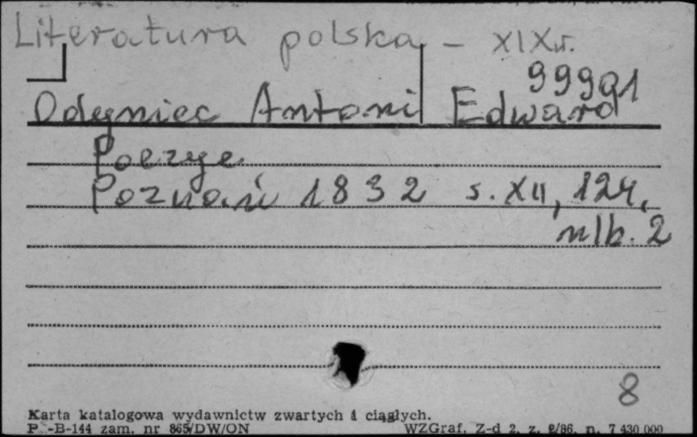 Literatura polska – XIXw.
99991
Odyniec Antoni Edward
Poezye
Poznań 1832 s. XII, 124,
nlb. 2
8
Karta katalogowa wydawnictw zwartych i ciągłych.
P -B-144 zam. nr 865/DW/ON WZGraf. Z-d 2, z. 2/86, n. 7 430 000